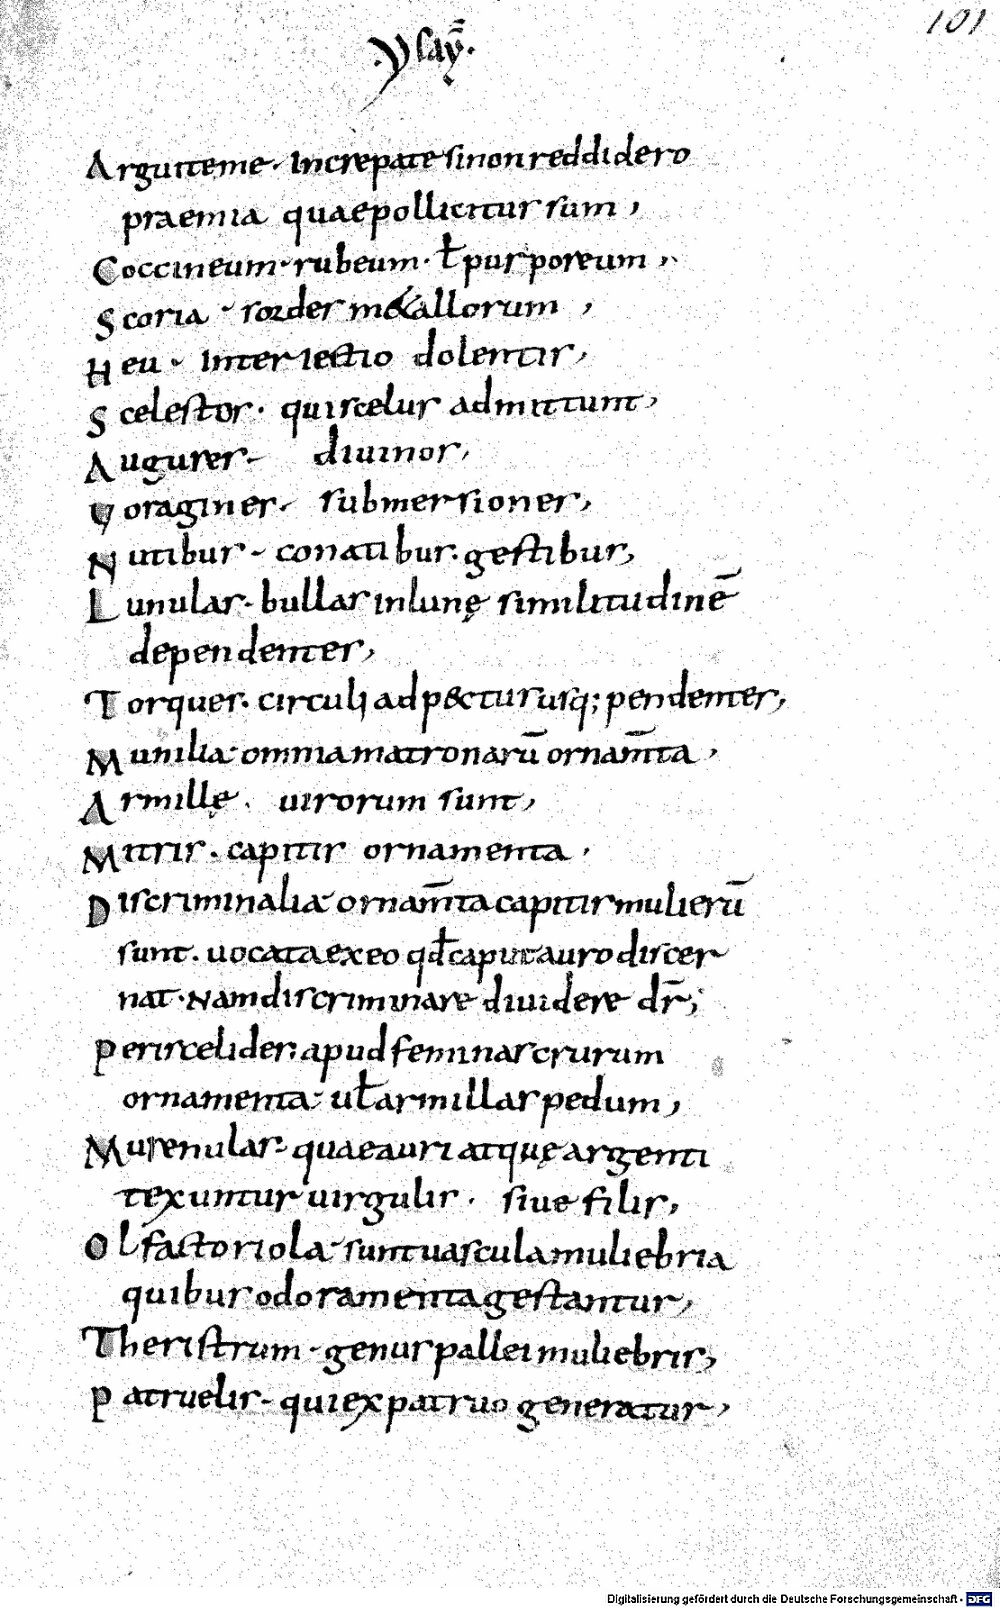 101
·Ysaȳ·
Arguiteme· Increpate sinonreddidero
praemia quaepollicitus sum,
Coccineum· rubeum· ł purporeum,
Scoria· sordes m&allorum,
Heu· Interiectio dolentis,
Scelestos· quiscelus admittunt,
Augures· diuinos,
Uoragines· submersiones,
Nutibus· conatibus· gestibus,
Lunulas· bullas inlunę similitudinē
dependentes,
Torques· circuli adp&ctus usq; pendentes,
Munilia· omnia matronarū ornam̄ta,
Armillę· uirorum sunt,
Mitris· capitis ornamenta,
Discriminalia· ornam̄ta capitis mulierū
sunt· uocata exeo qđ caput auro discer
nat· Nam discriminare diuidere dr̄;
Periscelides· apud feminas crurum
ornamenta· uł armillas pedum,
Murenulas· quae auri atquę argenti
texuntur uirgulis· siue filis,
Olfactoriola· sunt uascula muliebria
quibus odoramenta gestantur,
Theristrum· genus pallei muliebris,
Patruelis· qui ex patruo generatur,
Digitalisierung gefördert durch die Deutsche Forschungsgemeinschaft - DFG